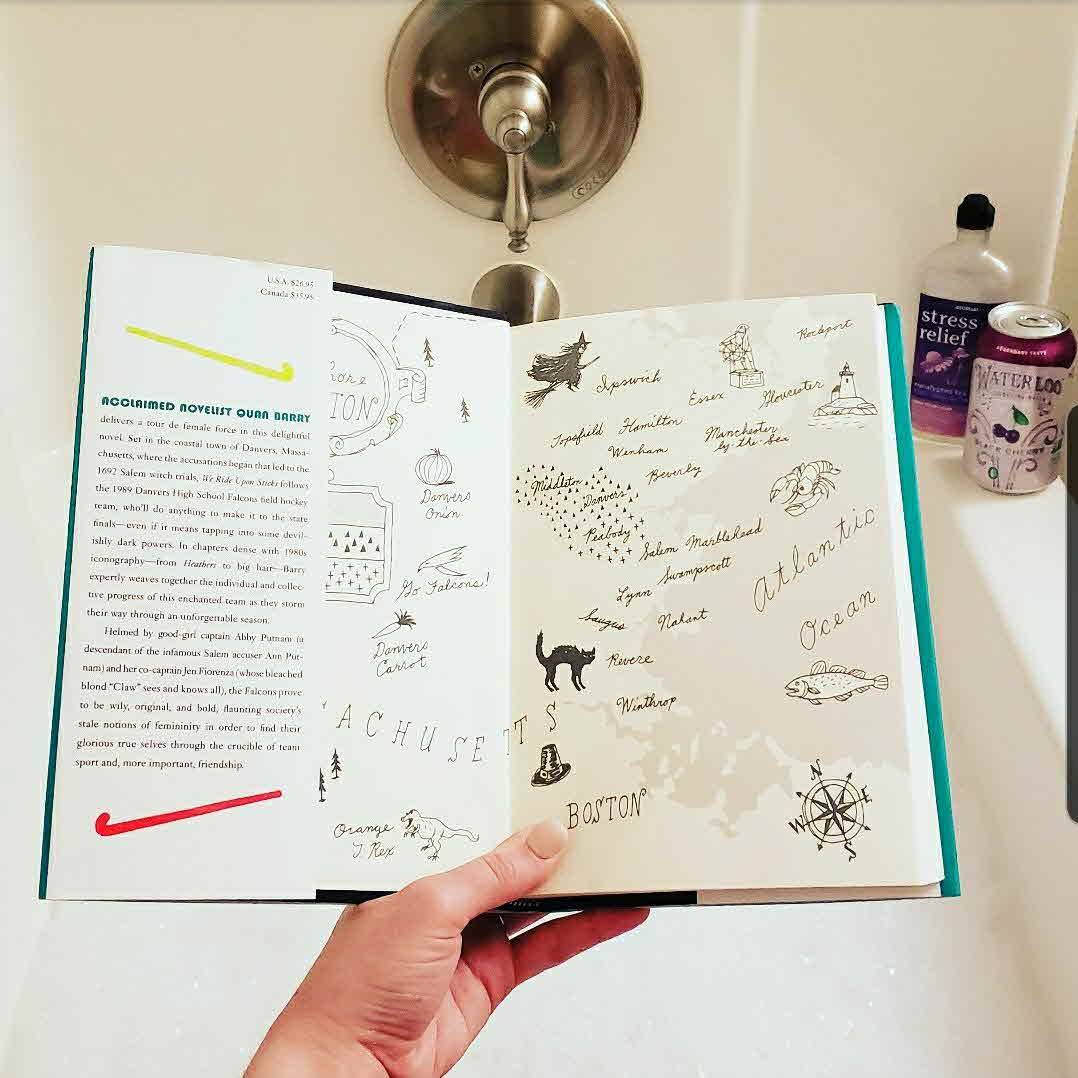 U.S.A. $26.95
Canada $35.95
ACCLAIMED NOVELIST QUAN BARRY
delivers a tour de female force in this delightful
novel. Set in the coastal town of Danvers, Massa-
chusetts, where the accusations began that led to the
1692 Salem witch trials, We Ride Upon Sticks follows
the 1989 Danvers High School Falcons field hockey
team, who'll do anything to make it to the state
finals—even if it means tapping into some devil-
ishly dark powers. In chapters dense with 1980s
iconography—from Heathers to big hair—Barry
expertly weaves together the individual and collec-
tive progress of this enchanted team as they storm
their way through an unforgettable season.
Helmed by good-girl captain Abby Putnam (a
descendant of the infamous Salem accuser Ann Put-
nam) and her co-captain Jen Fiorenza (whose bleached
blond "Claw" sees and knows all), the Falcons prove
to be wily, original, and bold, flaunting society's
stale notions of femininity in order to find their
glorious true selves through the crucible of team
sport and, more important, friendship.
hore
ION
Danvers
Onion
Go Falcons!
Danvers
Carrot
ACHUSETTS
Orange
T. Rex
Rockport
Ipswich
Essex
Gloucester
Topsfield
Hamilton
Manchester
by-the-Sea
Wenham
Beverly
Middleton
Danvers
Peabody
Salem
Marblehead
Swampscott
Lynn
Saugus
Nahant
Revere
Winthrop
BOSTON
Atlantic
Ocean
N
E
W
S
stress
relief
WATERLOO
BLACK CHERRY